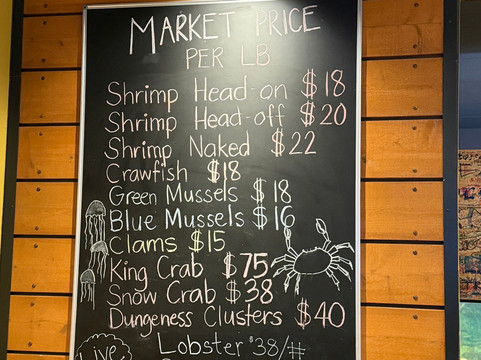 MARKET PRICE
PER LB
Shrimp Head-on $18
Shrimp Head-off $20
Shrimp Naked $22
Crawfish $18
Green Mussels $18
Blue Mussels $16
Clams $15
King Crab $75
Snow Crab $38
Dungeness Clusters $40
Live Lobster $38/#